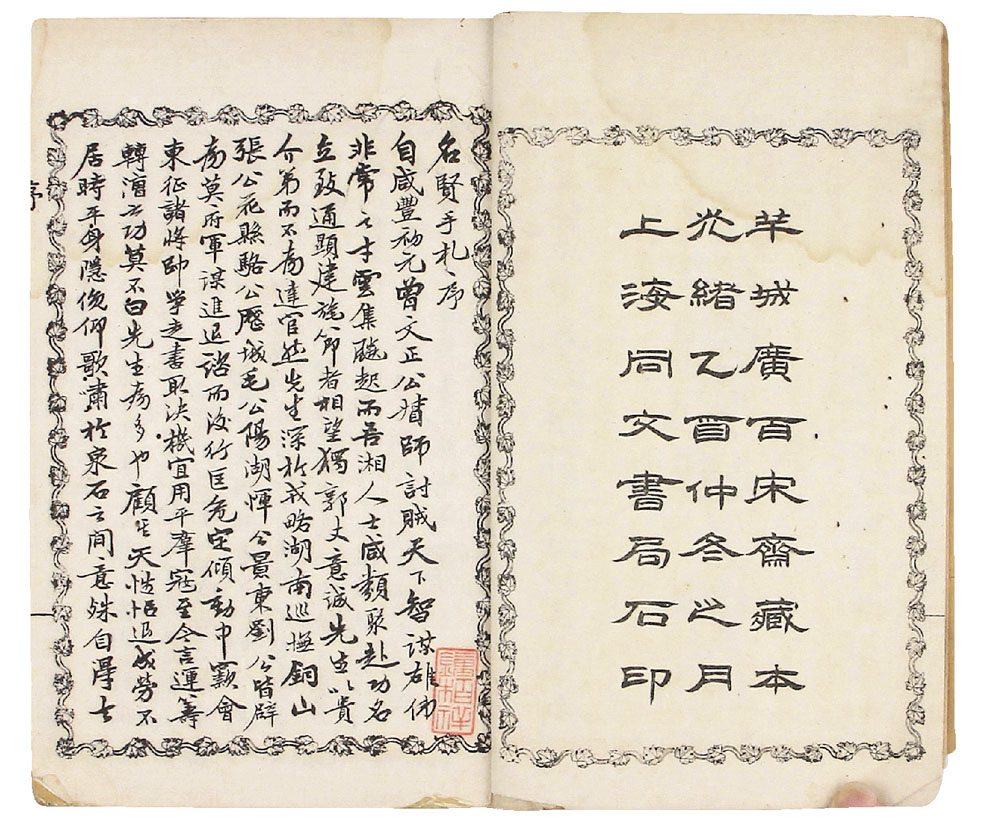 羊城廣百宋齋藏本
光緒乙酉仲冬之月
上海同文書局石印
名賢手札序
自咸豐初元曾文正公揩師討賊天下智謀雄偉
非常之才雲集飈起而吾湘人士咸類聚赴功名
立致通顯建旄節者相望獨郭丈意誠先生以貴
介弟而不為達官然先生深於戎略湖南巡撫銅山
張公花縣駱公歷城毛公陽湖惲公景東劉公皆辟
為莫府軍謀進退諮而後行匡危定傾動中窾會
東征諸將帥學走書取決機宜用平羣寇至今言運籌
轉漕之功莫不曰先生為多也顧生天性恬退成勞不
居時平身隱俛仰歌嘯於泉石之間意殊自得七
序